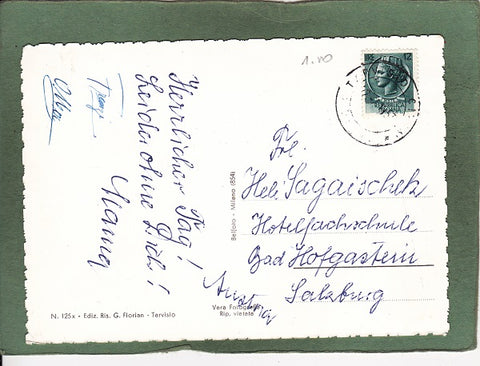 Herrlicher Tag!
Leider ohne Dich!
Mama
1.00
Frl.
Heli Sagaischek
Hotelfachschule
Bad Hofgastein
Salzburg
Austria
Belforo - Milano (854)
N. 125x - Ediz. Ris. G. Florian - Tarvisio
Vera Fotografia
Rip. vietata